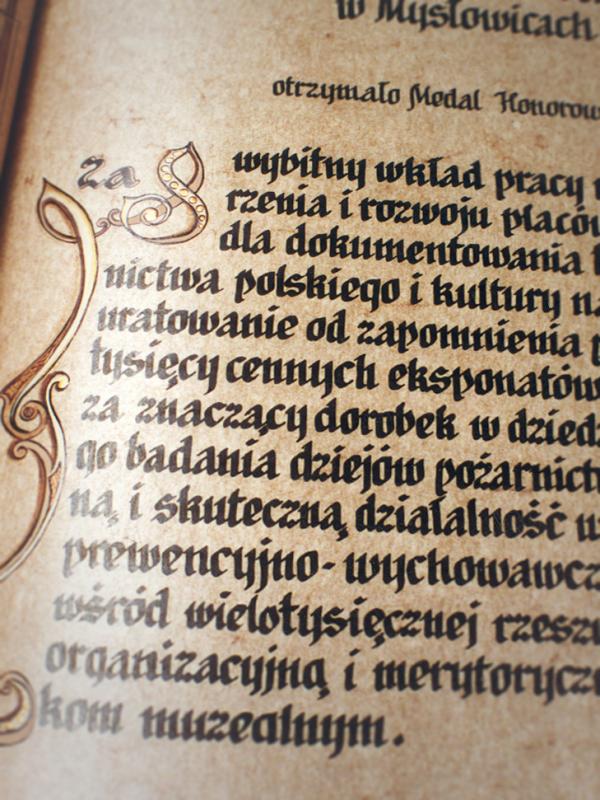 w Mysłowicach
otrzymało Medal Honorow
za wybitny wkład pracy
rzenia i rozwoju placów
dla dokumentowania
nictwa polskiego i kultury na
uratowanie od zapomnienia p
tysięcy cennych eksponatów
za znaczący dorobek w dziedz
go badania dziejów pożarnictw
ną, i skuteczną działalność w
prewencyjno-wychowawcz
wśród wielotysięcznej rzeszy
organizacyjną i merytoryczn
kom muzealnym.